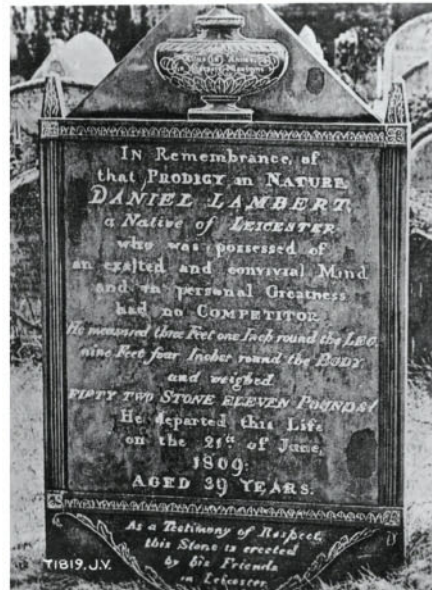 In Remembrance of
that PRODIGY in NATURE
DANIEL LAMBERT
a Native of LEICESTER
who was possessed of
an exalted and convivial Mind
and in personal Greatness
had no COMPETITOR
He measured three Feet one Inch round the LEG
nine Feet four Inches round the BODY
and weighed
FIFTY TWO STONE ELEVEN POUNDS!
He departed this Life
on the 21st of June,
1809:
AGED 39 YEARS.
As a Testimony of Respect,
this Stone is erected
by his Friends
in Leicester.
71819. J.V.